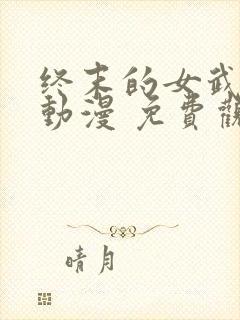 终末的女武
動漫 免費觀
晴月